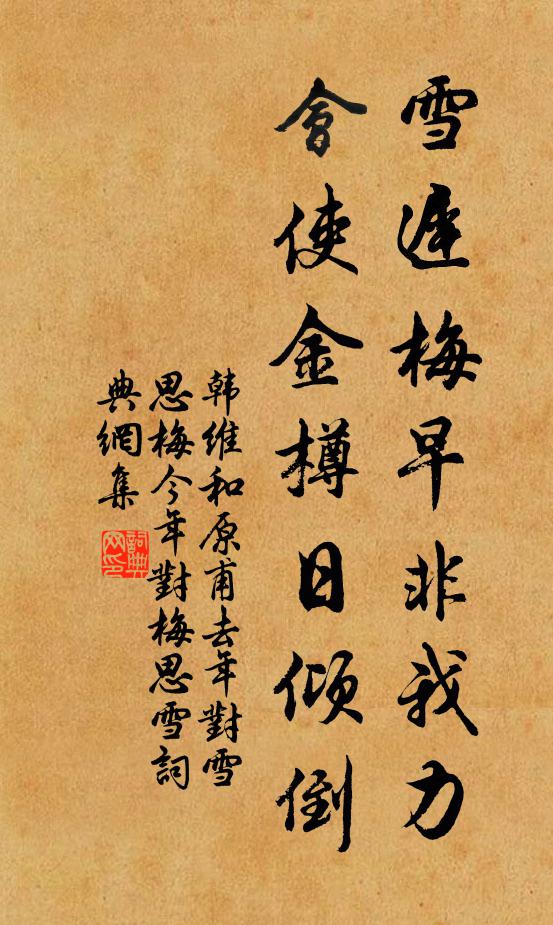 雪遲梅早非我力
會使金樽日傾倒
韩維和原甫去年對雪
思梅今年對梅思雪詞
典網集
詞典網印